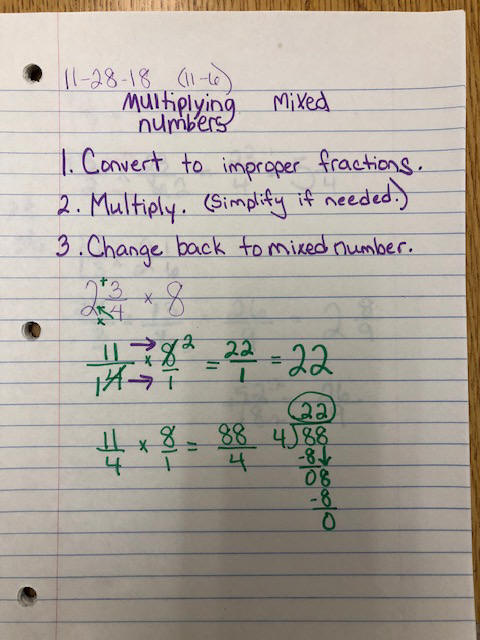 11-28-18 (11-6)
Multiplying Mixed
numbers
1. Convert to improper fractions.
2. Multiply. (Simplify if needed.)
3. Change back to mixed number.
2 3/4 × 8
+
×
11/4 1 × 8/1 2 = 22/1 = 22
11/4 × 8/1 = 88/4
22
4)88
-8↓
08
-8
0